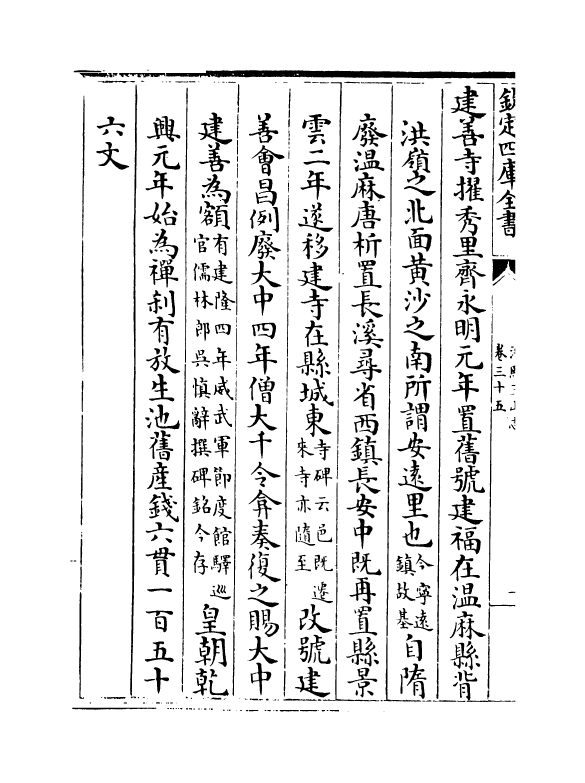 欽定四庫全書
卷三十五
建善寺擢秀里齊永明元年置舊號建福在温麻縣背
洪嶺之北面黄沙之南所謂安逺里也今寧逺鎮故基自隋
廢温麻唐析置長溪尋省西鎮長安中既再置縣景
雲二年遂移建寺在縣城東寺碑云邑既遷來寺亦隨至改號建
善會昌例廢大中四年僧大千令弇奏復之賜大中
建善為額有建隆四年威武軍節度館驛巡官儒林郎吳慎辭撰碑銘今存皇朝乾
興元年始為禪刹有放生池舊産錢六貫一百五十
六文